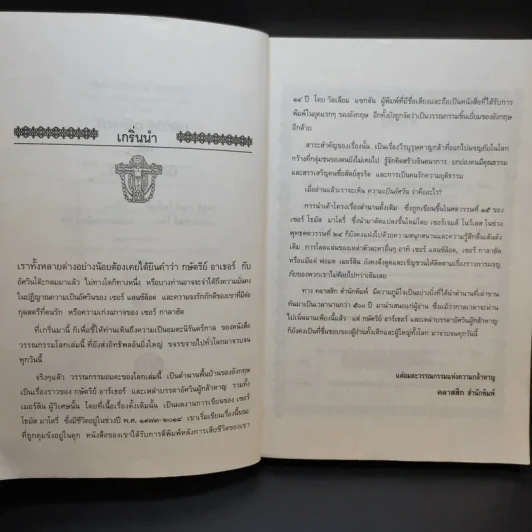 เกริ่นนำ
เราทั้งหลายต่างอย่างน้อยต้องเคยได้ยินคำว่า กษัตริย์ อาเธอร์ กับ
อัศวินโต๊ะกลมมาแล้ว ไม่ทางใดก็ทางหนึ่ง หรือบางท่านอาจจะจำได้ถึงความมั่นคง
ในปฏิญาณความเป็นอัศวินของ เซอร์ แลนซ์ล็อต และความจงรักภักดีของเขาที่มีต่อ
กุลสตรีที่ตนรัก หรือความเก่งกล้าของ เซอร์ กาลาฮัด
ที่เกริ่นมานี้ ก็เพื่อชี้ให้ท่านเห็นถึงความเป็นอมตะนิรันดร์กาล ของหนังสือ
วรรณกรรมโลกเล่มนี้ ที่ยังส่งอิทธิพลอันยิ่งใหญ่ ขจรขจายไปทั่วโลกมาจวบจน
ทุกวันนี้
จริงๆแล้ว วรรณกรรมอมตะของโลกเล่มนี้ เป็นตำนานพื้นบ้านของอังกฤษ
เป็นเรื่องราวของ กษัตริย์ อาร์เธอร์ และเหล่าบรรดาอัศวินผู้กล้าหาญ รวมทั้ง
เมอร์ลิน ผู้วิเศษนั้น โดยที่เนื้อเรื่องดั้งเดิมนั้น เป็นผลงานการเขียนของ เซอร์
โธมัส มาโลรี่ ซึ่งมีชีวิตอยู่ในช่วงปี พ.ศ. ๑๙๗๓-๒๐๑๔ เขาเริ่มเขียนเรื่องนี้ขณะ
ที่ถูกคุมขังอยู่ในคุก หนังสือของเขาได้รับการตีพิมพ์หลังการเสียชีวิตของเขา
๑๔ ปี โดย วิลเลียม แซกตัน ผู้พิมพ์ที่มีชื่อเสียงและถือเป็นหนังสือที่ได้รับการ
พิมพ์ในยุคแรกๆ ของอังกฤษ อีกทั้งยังถูกจัดว่าเป็นวรรณกรรมชิ้นเยี่ยมของอังกฤษ
อีกด้วย
สาระสำคัญของเรื่องนั้น เป็นเรื่องวีรบุรุษหาญกล้าที่ออกไปผจญภัยในโลก
กว้างที่กลุ่มชนของตนยังไม่เคยไป รู้จักคิดสร้างจินตนาการ ยกย่องคนมีคุณธรรม
และสรรเสริญคนซื่อสัตย์สุจริต และการเป็นคนรักความยุติธรรม
เมื่ออ่านแล้วเราจะเห็น ความเป็นอัศวิน ว่าคืออะไร?
การนำเค้าโครงเรื่องตำนานดั้งเดิม ซึ่งถูกเขียนขึ้นในศตวรรษที่ ๑๕ ของ
เซอร์ โธมัส มาโลรี่ ซึ่งนำมาดัดแปลงขึ้นใหม่โดย เซอร์เจมส์ โนว์เลส ในช่วง
พุทธศตวรรษที่ ๒๔ ก็ยังคงแฝงไปด้วยความสนุกสนานและความรู้สึกตื่นเต้นดั้ง
เดิม การโลดแล่นของเหล่าตัวละครอื่นๆ อาทิ เซอร์ แลนซ์ล็อต, เซอร์ กาลาฮัด
หรือแม้แต่ พ่อมด เมอร์ลิน ยังคงดึงดูดและเชิญชวนให้ติดตามเรื่องราวการผจญ
ภัยของพวกเขาไม่ด้อยไปกว่าเดิมเลย
ทาง คลาสสิก สำนักพิมพ์ มีความภูมิใจเป็นอย่างยิ่งที่ได้นำตำนานที่เล่าขาน
กันมาเป็นเวลานานกว่า ๕๐๐ ปี มานำเสนอแก่ผู้อ่าน ซึ่งแม้ว่ากาลเวลาจะผ่าน
ไปเนิ่นนานเพียงนี้แล้ว แต่ กษัตริย์ อาร์เธอร์ และเหล่าบรรดาอัศวินผู้กล้าหาญ
ก็ยังคงเป็นที่ชื่นชอบของผู้อ่านทั้งเด็กและผู้ใหญ่ทั้งโลก มาจวบจนทุกวันนี้
แด่อมตะวรรณกรรมแห่งความกล้าหาญ
คลาสสิก สำนักพิมพ์